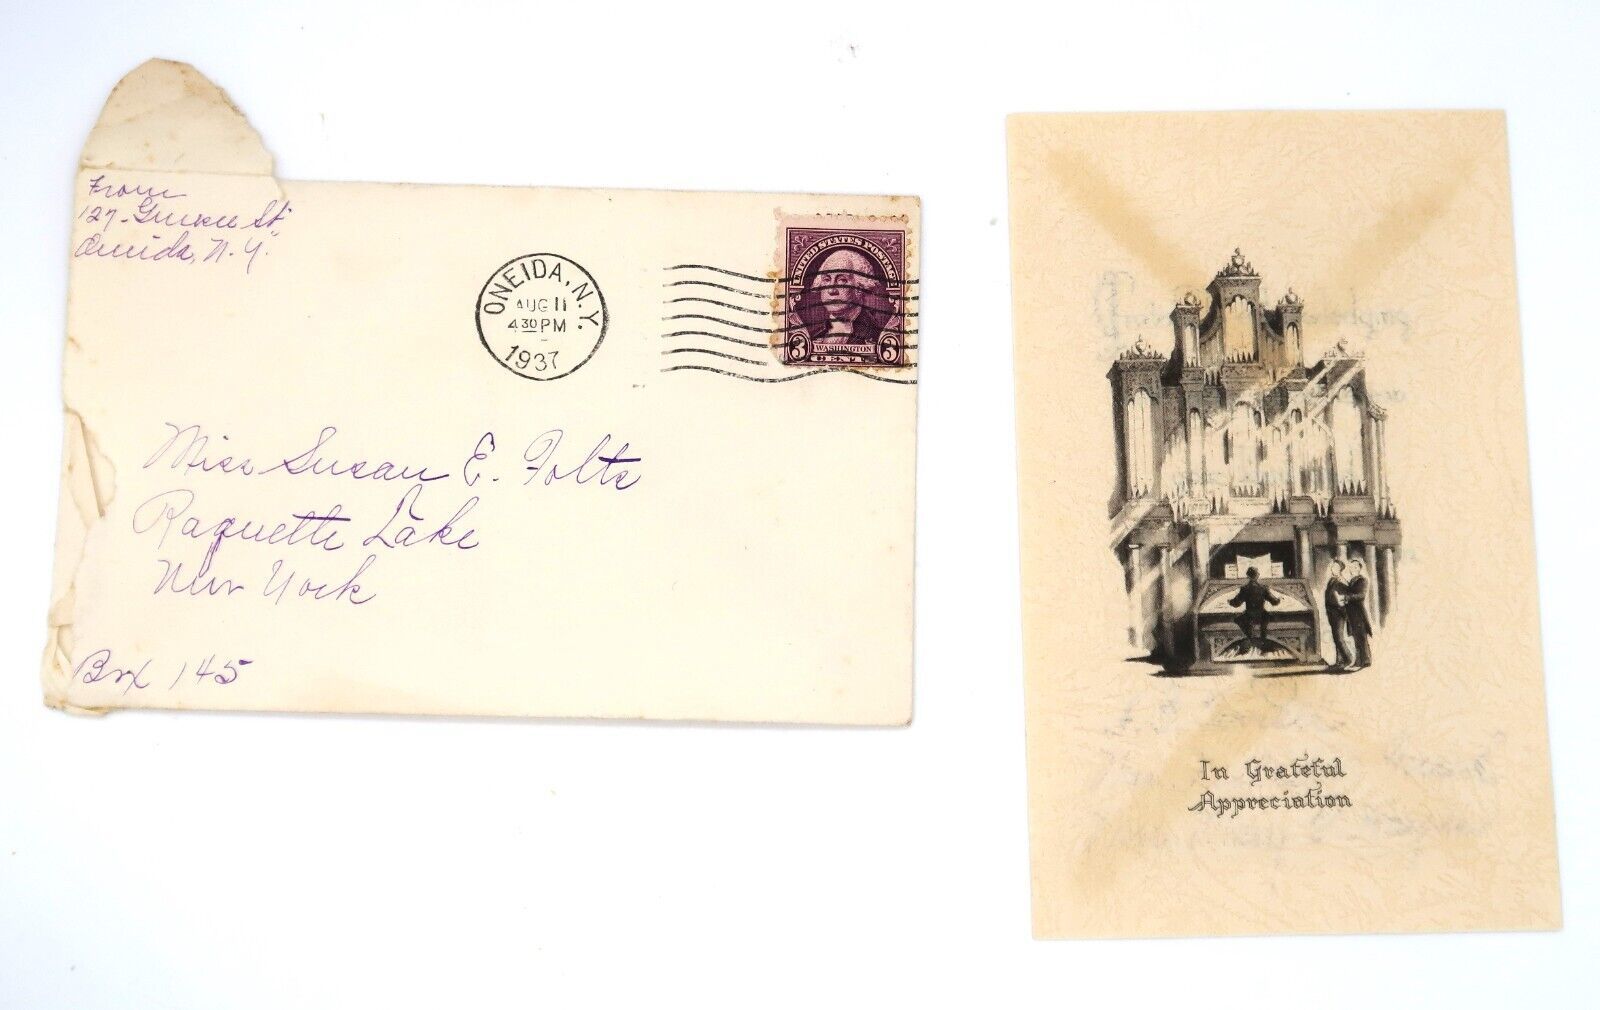 From
127 - St.
Oneida, N.Y.
ONEIDA, N.Y.
AUG 11
4 30 PM
1937
UNITED STATES POSTAGE
WASHINGTON
3 CENTS 3
Miss Susan E. Folts
Raquette Lake
New York
Box 145
In Grateful
Appreciation